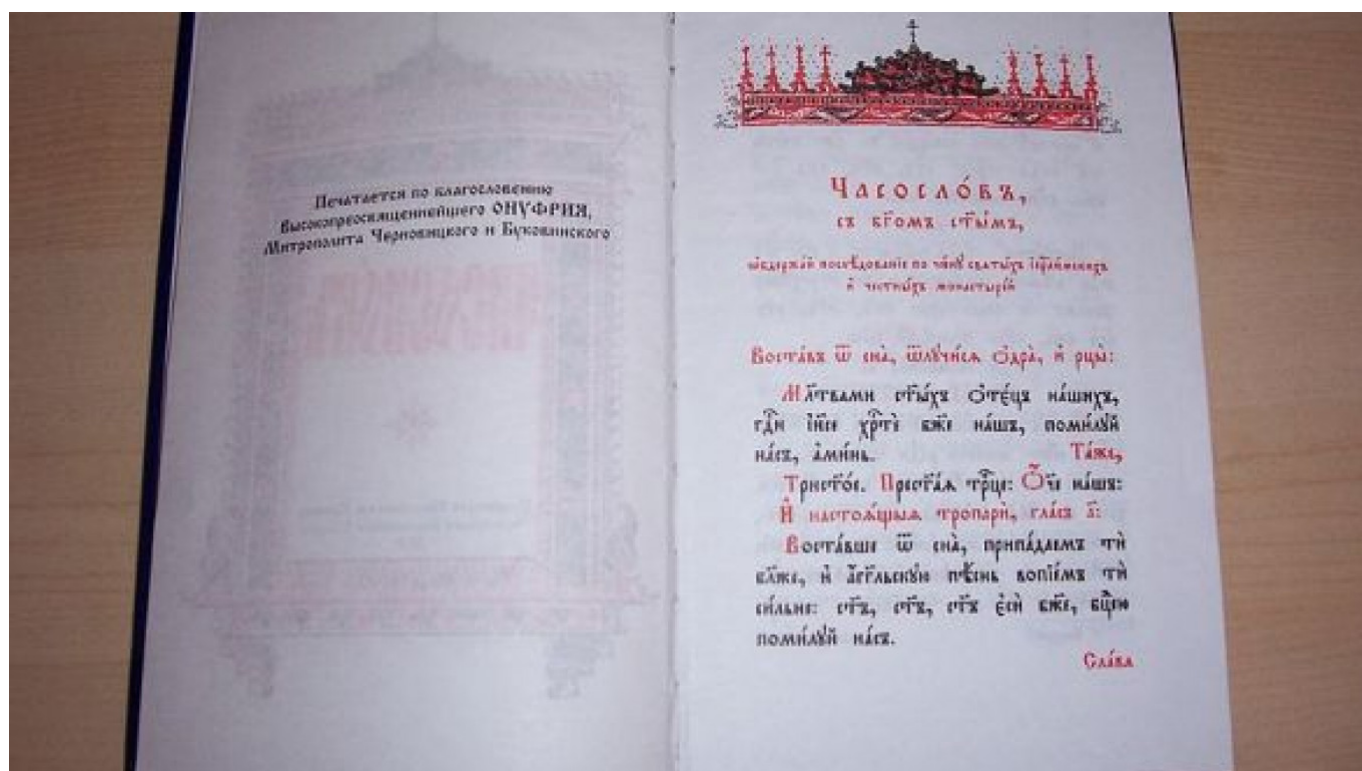 Печатается по благословению
Высокопреосвященнейшего ОНУФРИЯ,
Митрополита Черновицкого и Буковинского
Часосло́въ,
съ бг҃омъ ст҃ы́мъ,
ѡ҆держа́й послѣ́дованїе по чи́нꙋ святы́хъ і҆ерⷭ҇ли́мскихъ
и҆ честны́хъ монастыре́й
Воста́въ ѿ сна̀, ѿлꙋчи́сѧ ѻ҆дра̀, и҆ рцы̀:
Мл҃твами ст҃ы́хъ ѻ҆тє́цъ на́шихъ,
гдⷭ҇и і҆и҃се хрⷭ҇тѐ бж҃е на́шъ, поми́лꙋй
на́съ, а҆ми́нь. Та́же,
Трист҃о́е. Прест҃а́ѧ трⷪ҇це: Ѻ҆́ч҃е на́шъ:
И҆ настоѧ́щыѧ тропарѝ, гла́съ а҃:
Воста́вше ѿ сна̀, припа́даемъ тѝ
бл҃же, и҆ а҆́гг҃льскꙋю пѣ́снь вопїе́мъ тѝ
си́льне: ст҃ъ, ст҃ъ, ст҃ъ є҆сѝ бж҃е, бцⷣею
поми́лꙋй на́съ.
Сла́ва